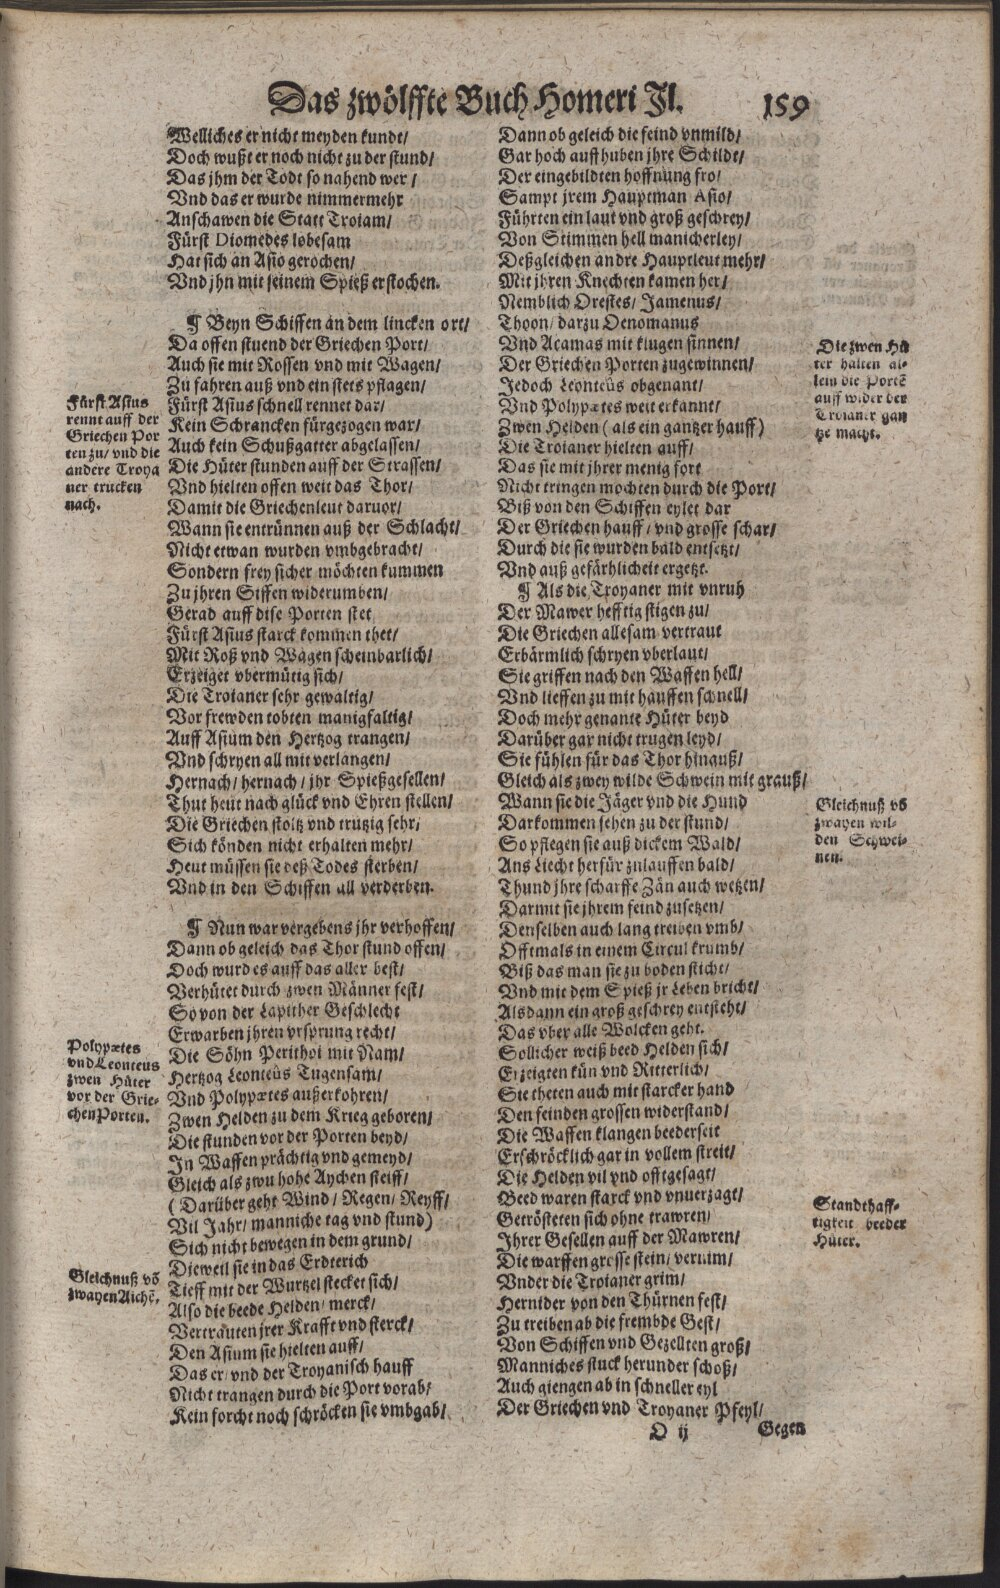 Das zwölffte Buch Homeri Jl. 159
Welliches er nicht meyden kundt/
Doch wußt er noch nicht zu der stund/
Das jhm der Todt so nahend wer/
Vnd das er wurde nimmermehr
Anschawen die Statt Troiam/
Fürst Diomedes lobesam
Hat sich an Asio gerochen/
Vnd jhn mit seinem Spieß erstochen.
¶ Beyn Schiffen an dem lincken ort/
Da offen stuend der Griechen Port/
Auch sie mit Rossen vnd mit Wagen/
Zu fahren auß vnd ein stets pflagen/
Fürst Asius schnell rennet dar/
Kein Schrancken fürgezogen war/
Auch kein Schußgatter abgelassen/
Die Hüter stunden auff der Strassen/
Vnd hielten offen weit das Thor/
Damit die Griechenleut daruor/
Wann sie entrünnen auß der Schlacht/
Nicht etwan wurden vmbgebracht/
Sondern frey sicher möchten kummen
Zu jhren Siffen widerumben/
Gerad auff dise Porten stet
Fürst Asius starck kommen thet/
Mit Roß vnd Wagen scheinbarlich/
Erzeiget vbermütig sich/
Die Troianer sehr gewaltig/
Vor frewden tobten manigfaltig/
Auff Asium den Hertzog trangen/
Vnd schryen all mit verlangen/
Hernach/ hernach/ jhr Spießgesellen/
Thut heut nach glück vnd Ehren stellen/
Die Griechen stoltz vnd trutzig sehr/
Sich könden nicht erhalten mehr/
Heut müssen sie deß Todes sterben/
Vnd in den Schiffen all verderben.
¶ Nun war vergebens jhr verhoffen/
Dann ob geleich das Thor stund offen/
Doch wurd es auff das aller best/
Verhütet durch zwen Männer fest/
So von der Lapither Geschlecht
Erwarben jhren vrsprung recht/
Die Söhn Perithoi mit Nam/
Hertzog Leonteüs Tugensam/
Vnd Polypætes außerkohren/
Zwen Helden zu dem Krieg geboren/
Die stunden vor der Porten beyd/
In Waffen prächtig vnd gemeyd/
Gleich als zwu hohe Aychen steiff/
(Darüber geht Wind/ Regen/ Reyff/
Vil Jahr/ manniche tag vnd stund)
Sich nicht bewegen in dem grund/
Dieweil sie in das Erdterich
Tieff mit der Wurtzel stecket sich/
Also die beede Helden/ merck/
Vertrauten jrer Krafft vnd sterck/
Den Asium sie hielten auff/
Das er/ vnd der Troyanisch hauff
Nicht trangen durch die Port vorab/
Kein forcht noch schröcken sie vmbgab/
Fürst Asius
rennt auff der
Griechen Por
ten zu/ vnd die
andere Troya
ner trucken
nach.
Polypætes
vnd Leonteus
zwen Hüter
vor der Grie-
chen Porten.
Gleichnuß võ
zwayen Aichẽ.
Dann ob geleich die feind vnmild/
Gar hoch auff huben jhre Schildt/
Der eingebildten hoffnung fro/
Sampt jrem Hauptman Asio/
Führten ein laut vnd groß geschrey/
Von Stimmen hell manicherley/
Deßgleichen andre Hauptleut mehr/
Mit jhren Knechten kamen her/
Nemblich Orestes/ Jamenus/
Thoon/ darzu Oenomanus
Vnd Acamas mit klugen sinnen/
Der Griechen Porten zugewinnen/
Jedoch Leonteüs obgenant/
Vnd Polypætes weit erkannt/
Zwen Helden (als ein gantzer hauff)
Die Troianer hielten auff/
Das sie mit jhrer menig fort
Nicht tringen mochten durch die Port/
Biß von den Schiffen eylet dar
Der Griechen hauff/ vnd grosse schar/
Durch die sie wurden bald entsetzt/
Vnd auß gefärhlicheit ergetzt.
¶ Als die Troyaner mit vnruh
Der Mawer hefftig stigen zu/
Die Griechen allesam vertraut
Erbärmlich schryen vberlaut/
Sie griffen nach den Waffen hell/
Vnd lieffen zu mit hauffen schnell/
Doch mehr genante Hüter beyd
Darüber gar nicht trugen leyd/
Sie fühlen für das Thor hinauß/
Gleich als zwey wilde Schwein mit grauß/
Wann sie die Jäger vnd die Hund
Darkommen sehen zu der stund/
So pflegen sie auß dickem Wald/
Ans Liecht herfür zulauffen bald/
Thund jhre scharffe Zän auch wetzen/
Darmit sie jhrem feind zusetzen/
Denselben auch lang treiben vmb/
Offtmals in einem Circul krumb/
Biß das man sie zu boden sticht/
Vnd mit dem Spieß jr Leben bricht/
Alsdann ein groß geschrey entsteht/
Das vber alle Wolcken geht.
Sollicher weiß beed Helden sich/
Erzeigten kün vnd Ritterlich/
Sie theten auch mit starcker hand
Den feinden grossen widerstand/
Die Waffen klangen beederseit
Erschröcklich gar in vollem streit/
Die Helden vil vnd offt gesagt/
Beed waren starck vnd vnuerzagt/
Getrösteten sich ohne trawren/
Ihrer Gesellen auff der Mawren/
Die warffen grosse stein/ vernim/
Vnder die Troianer grim/
Hernider von den Thürnen fest/
Zu treiben ab die frembde Gest/
Von Schiffen vnd Gezellten groß/
Manniches stuck herunder schoß/
Auch giengen ab in schneller eyl
Der Griechen vnd Troyaner Pfeyl/
Die zwen Hü
ter halten al-
lein die Portẽ
auff wider der
Troianer gan
tze macht.
Gleichnuß võ
zwayen wil-
den Schwei-
nen.
Standthaff-
tigkeit beeder
Hüter.
O ij Gegen